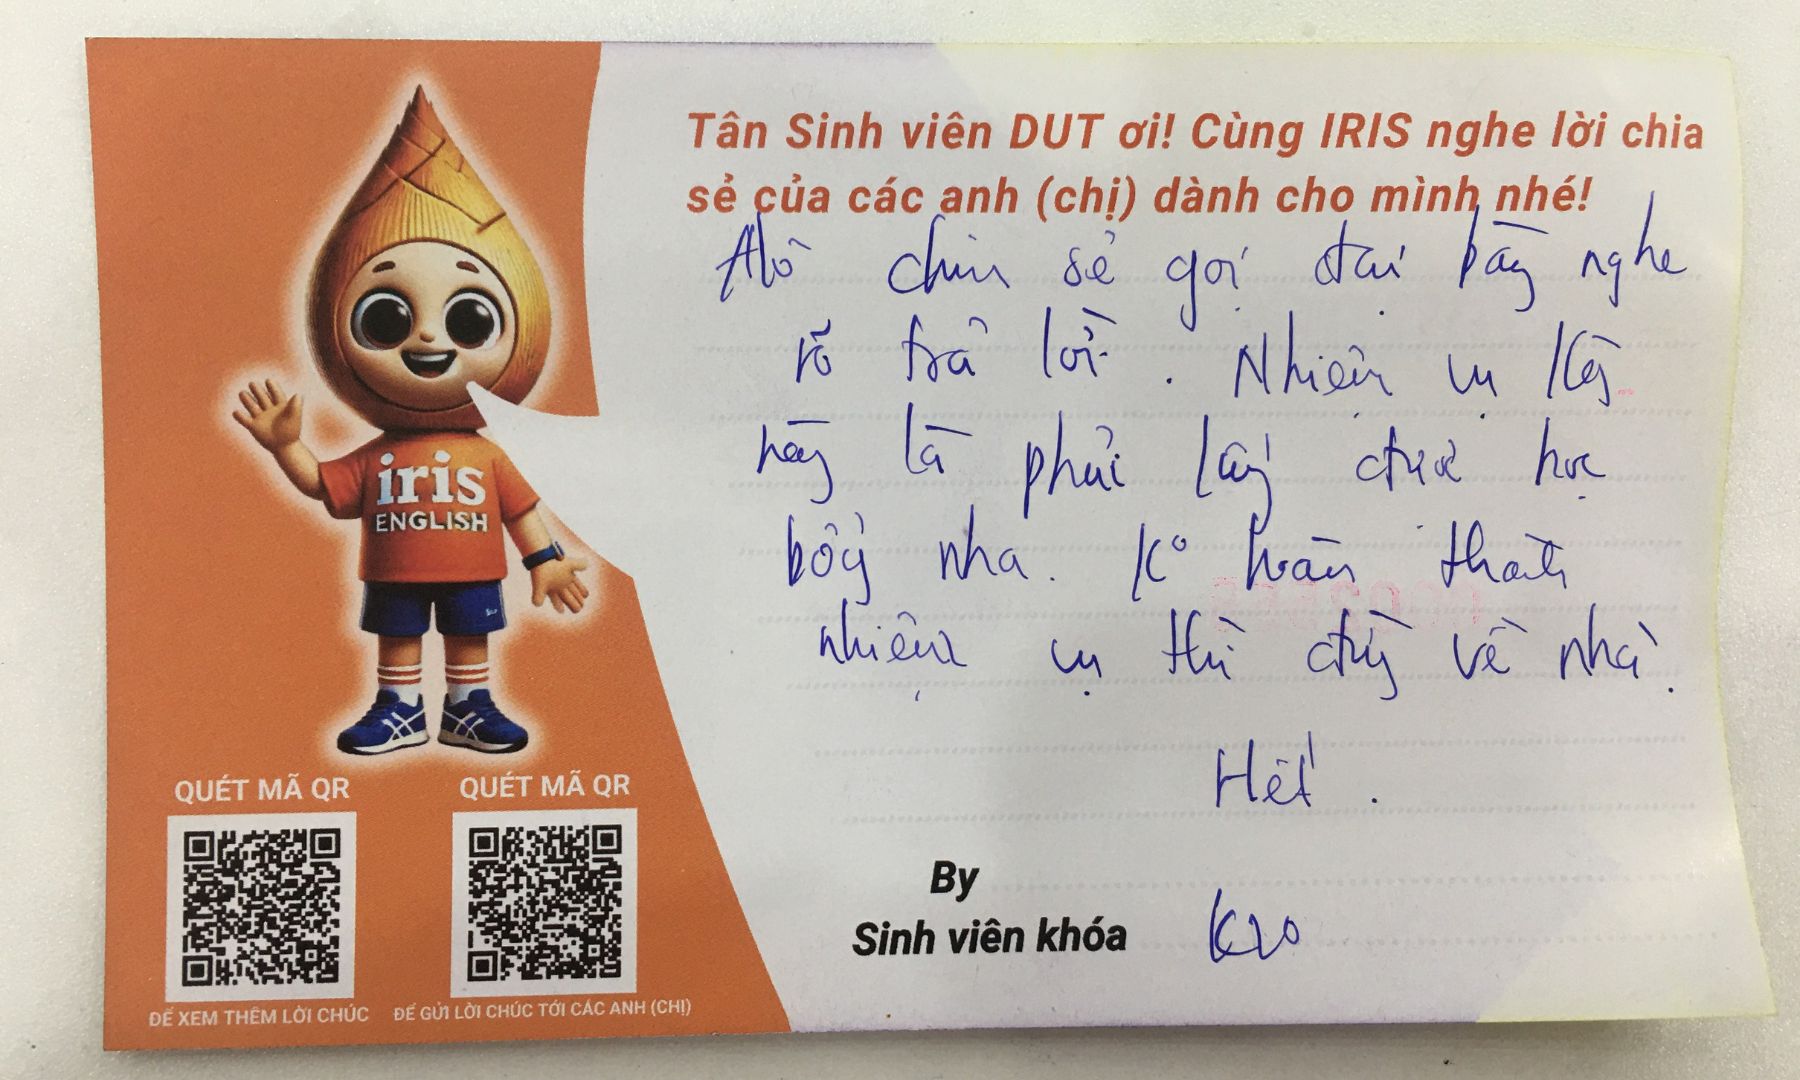 Tân Sinh viên DUT ơi! Cùng IRIS nghe lời chia
sẻ của các anh (chị) dành cho mình nhé!
Alô chim sẻ gọi đại bàng nghe
rõ trả lời. Nhiệm vụ kỳ
này là phải lấy được học
bổng nha. K° hoàn thành
nhiệm vụ thì đừng về nhà.
Hết.
By
Sinh viên khóa K20
iris
ENGLISH
QUÉT MÃ QR
QUÉT MÃ QR
ĐỂ XEM THÊM LỜI CHÚC
ĐỂ GỬI LỜI CHÚC TỚI CÁC ANH (CHỊ)